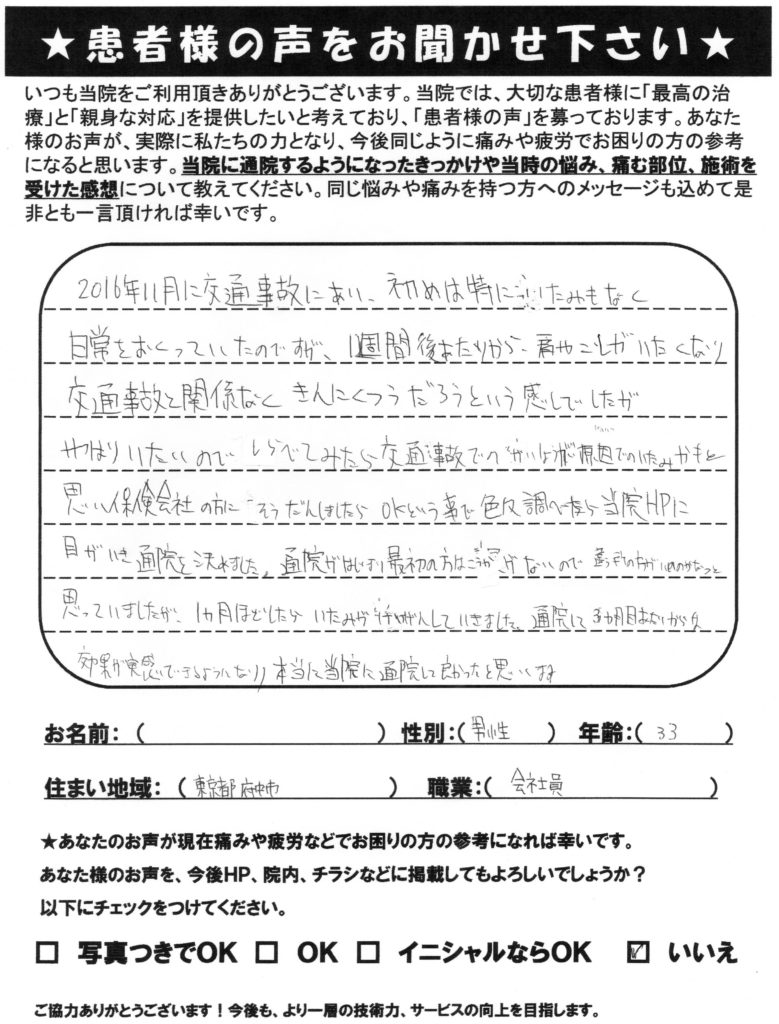 ★患者様の声をお聞かせ下さい★
いつも当院をご利用頂きありがとうございます。当院では、大切な患者様に「最高の治
療」と「親身な対応」を提供したいと考えており、「患者様の声」を募っております。あなた
様のお声が、実際に私たちの力となり、今後同じように痛みや疲労でお困りの方の参考
になると思います。当院に通院するようになったきっかけや当時の悩み、痛む部位、施術を
受けた感想について教えてください。同じ悩みや痛みを持つ方へのメッセージも込めて是
非とも一言頂ければ幸いです。
2016年11月に交通事故にあい、初めは特に いたみもなく
日常をおくっていたのですが、1週間後あたりから、肩やこしがいたくなり
交通事故と関係なく きんにくつうだろうという感じでしたが
やはりいたいので しらべてみたら交通事故での が原因でのいたみかもと
思い保険会社の方に そうだんしましたら OKという事で色々調べたら当院HPに
目がいき通院を決めました。通院がはじまり最初の方は がないので
思っていましたが、1カ月ほどしたら いたみが していきました。通院して3か月目
効果が実感できるようになり、本当に当院に通院して良かったと思います
お名前：（ ） 性別：（男性 ） 年齢：（ 33 ）
住まい地域：（東京都府中市 ） 職業：（ 会社員 ）
★あなたのお声が現在痛みや疲労などでお困りの方の参考になれば幸いです。
あなた様のお声を、今後HP、院内、チラシなどに掲載してもよろしいでしょうか？
以下にチェックをつけてください。
□ 写真つきでOK □ OK □ イニシャルならOK ☑ いいえ
ご協力ありがとうございます！今後も、より一層の技術力、サービスの向上を目指します。